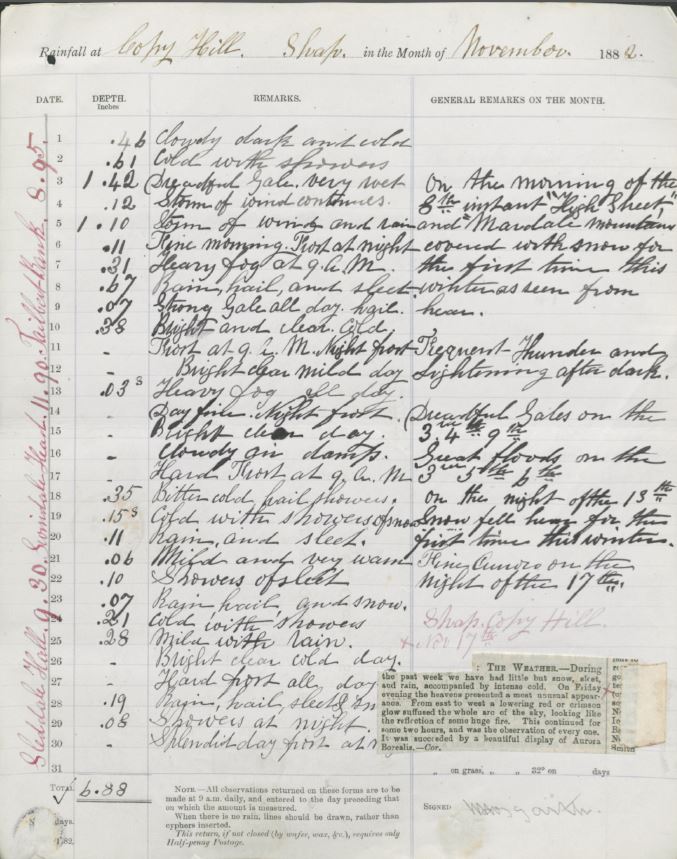 Rainfall at Copy Hill. Shap. in the Month of November. 1882.
DATE. DEPTH. Inches REMARKS. GENERAL REMARKS ON THE MONTH.
1 .46 Clowdy dark and cold
2 .61 Cold with showers
3 1.42 Dreadful Gale, very wet
4 .12 Storm of wind continues.
5 1.10 Storm of wind and rain
6 .11 Fine morning. Frost at night
7 .31 Heavy fog at 9. A. M.
8 .67 Rain, hail, and sleet
9 .07 Strong Gale all day. hail.
10 .38 Bright and clear. Cold
11 - Frost at 9. A. M. Night frost
12 - Bright clear mild day
13 .03 s Heavy fog all day.
14 - Day fine. Night frost.
15 - Bright clear day.
16 - Clowdy air damp.
17 - Hard Frost at 9. A. M
18 .35 Bitter cold hail showers.
19 .15 s Cold with showers of snow
20 .11 Rain, and sleet.
21 .06 Mild and very warm
22 .10 Showers of sleet
23 .07 Rain hail, and snow.
24 .21 Cold with showers
25 .28 Mild with rain.
26 - Bright clear cold day.
27 - Hard frost all day
28 .19 Rain, hail, sleet &
29 .08 Showers at night.
30 - Splendid day frost at
31
On the morning of the
8th instant "High Street"
and "Mardale" mountains
covered with snow for
the first time this
winter as seen from
hear.
Frequent Thunder and
Lightening after dark.
Dreadful Gales on the
3rd 4th 9th
Great floods on the
3rd 5th 6th
On the night of the 13th
Snow fell hear for the
first time this winter.
Fine Auroro on the
Night of the 17th.
Shap. Copy Hill.
+ Nov 17th
: THE WEATHER.—During
the past week we have had little but snow, sleet,
and rain, accompanied by intense cold. On Friday
evening the heavens presented a most unusual appear-
ance. From east to west a lowering red or crimson
glow suffused the whole arc of the sky, looking like
the reflection of some huge fire. This continued for
some two hours, and was the observation of every one.
It was succeeded by a beautiful display of Aurora
Borealis.—Cor.
" on grass, " " 32° on days
TOTAL 6.88
NOTE.—All observations returned on these forms are to be
made at 9 a.m. daily, and entered to the day preceding that
on which the amount is measured.
When there is no rain, lines should be drawn, rather than
cyphers inserted.
This return, if not closed (by wafer, wax, &c.), requires only
Half-penny Postage.
SIGNED
days.
Sleddale Hall 9.30.
11.90.
8.95.